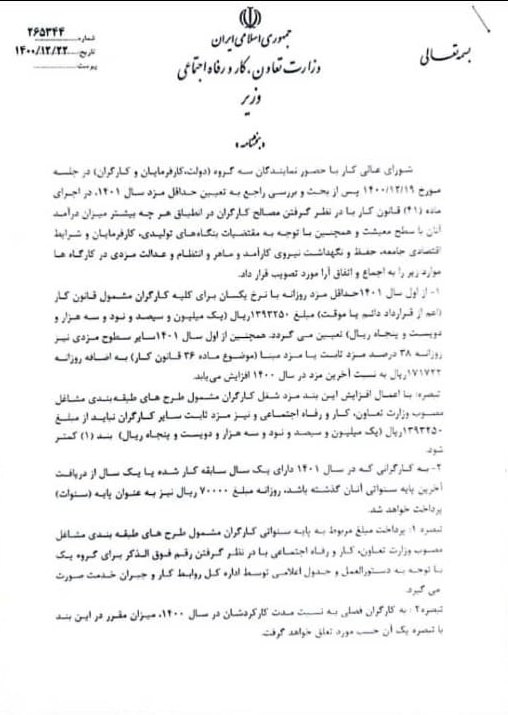 بسمه تعالی
جمهوری اسلامی ایران
وزارت تعاون، کار و رفاه اجتماعی
وزیر
شماره ۲۶۵۳۴۴
تاریخ ۱۴۰۰/۱۲/۲۲
پیوست
«بخشنامه»
شورای عالی کار با حضور نمایندگان سه گروه (دولت،کارفرمایان و کارگران) در جلسه
مورخ ۱۴۰۰/۱۲/۱۹ پس از بحث و بررسی راجع به تعیین حداقل مزد سال ۱۴۰۱، در اجرای
ماده (۴۱) قانون کار با در نظر گرفتن مصالح کارگران در انطباق هر چه بیشتر میزان درآمد
آنان با سطح معیشت و همچنین با توجه به مقتضیات بنگاه‌های تولیدی، کارفرمایان و شرایط
اقتصادی جامعه، حفظ و نگهداشت نیروی کارآمد و ماهر و انتظام و عدالت مزدی در کارگاه ها
موارد زیر را به اجماع و اتفاق آرا مورد تصویب قرار داد.
۱- از اول سال ۱۴۰۱حداقل مزد روزانه با نرخ یکسان برای کلیه کارگران مشمول قانون کار
(اعم از قرارداد دائم یا موقت) مبلغ ۱۳۹۳۲۵۰ریال (یک میلیون و سیصد و نود و سه هزار و
دویست و پنجاه ریال) تعیین می گردد. همچنین از اول سال ۱۴۰۱سایر سطوح مزدی نیز
روزانه ۳۸ درصد مزد ثابت یا مزد مبنا (موضوع ماده ۳۶ قانون کار) به اضافه روزانه
۱۷۱۷۲۲ریال به نسبت آخرین مزد در سال ۱۴۰۰ افزایش می‌یابد.
تبصره: با اعمال افزایش این بند مزد شغل کارگران مشمول طرح های طبقه‌بندی مشاغل
مصوب وزارت تعاون، کار و رفاه اجتماعی و نیز مزد ثابت سایر کارگران نباید از مبلغ
۱۳۹۳۲۵۰ریال (یک میلیون و سیصد و نود و سه هزار و دویست و پنجاه ریال) بند (۱) کمتر
شود.
۲- به کارگرانی که در سال ۱۴۰۱ دارای یک سال سابقه کار شده یا یک سال از دریافت
آخرین پایه سنواتی آنان گذشته باشد، روزانه مبلغ ۷۰۰۰۰ ریال نیز به عنوان پایه (سنوات)
پرداخت خواهد شد.
تبصره ۱: پرداخت مبلغ مربوط به پایه سنواتی کارگران مشمول طرح های طبقه بندی مشاغل
مصوب وزارت تعاون، کار و رفاه اجتماعی با در نظر گرفتن رقم فوق الذکر برای گروه یک
با توجه به دستورالعمل و جدول اعلامی توسط اداره کل روابط کار و جبران خدمت صورت
می گیرد.
تبصره۲: به کارگران فصلی به نسبت مدت کارکردشان در سال ۱۴۰۰، میزان مقرر در این بند
یا تبصره یک آن حسب مورد تعلق خواهد گرفت.